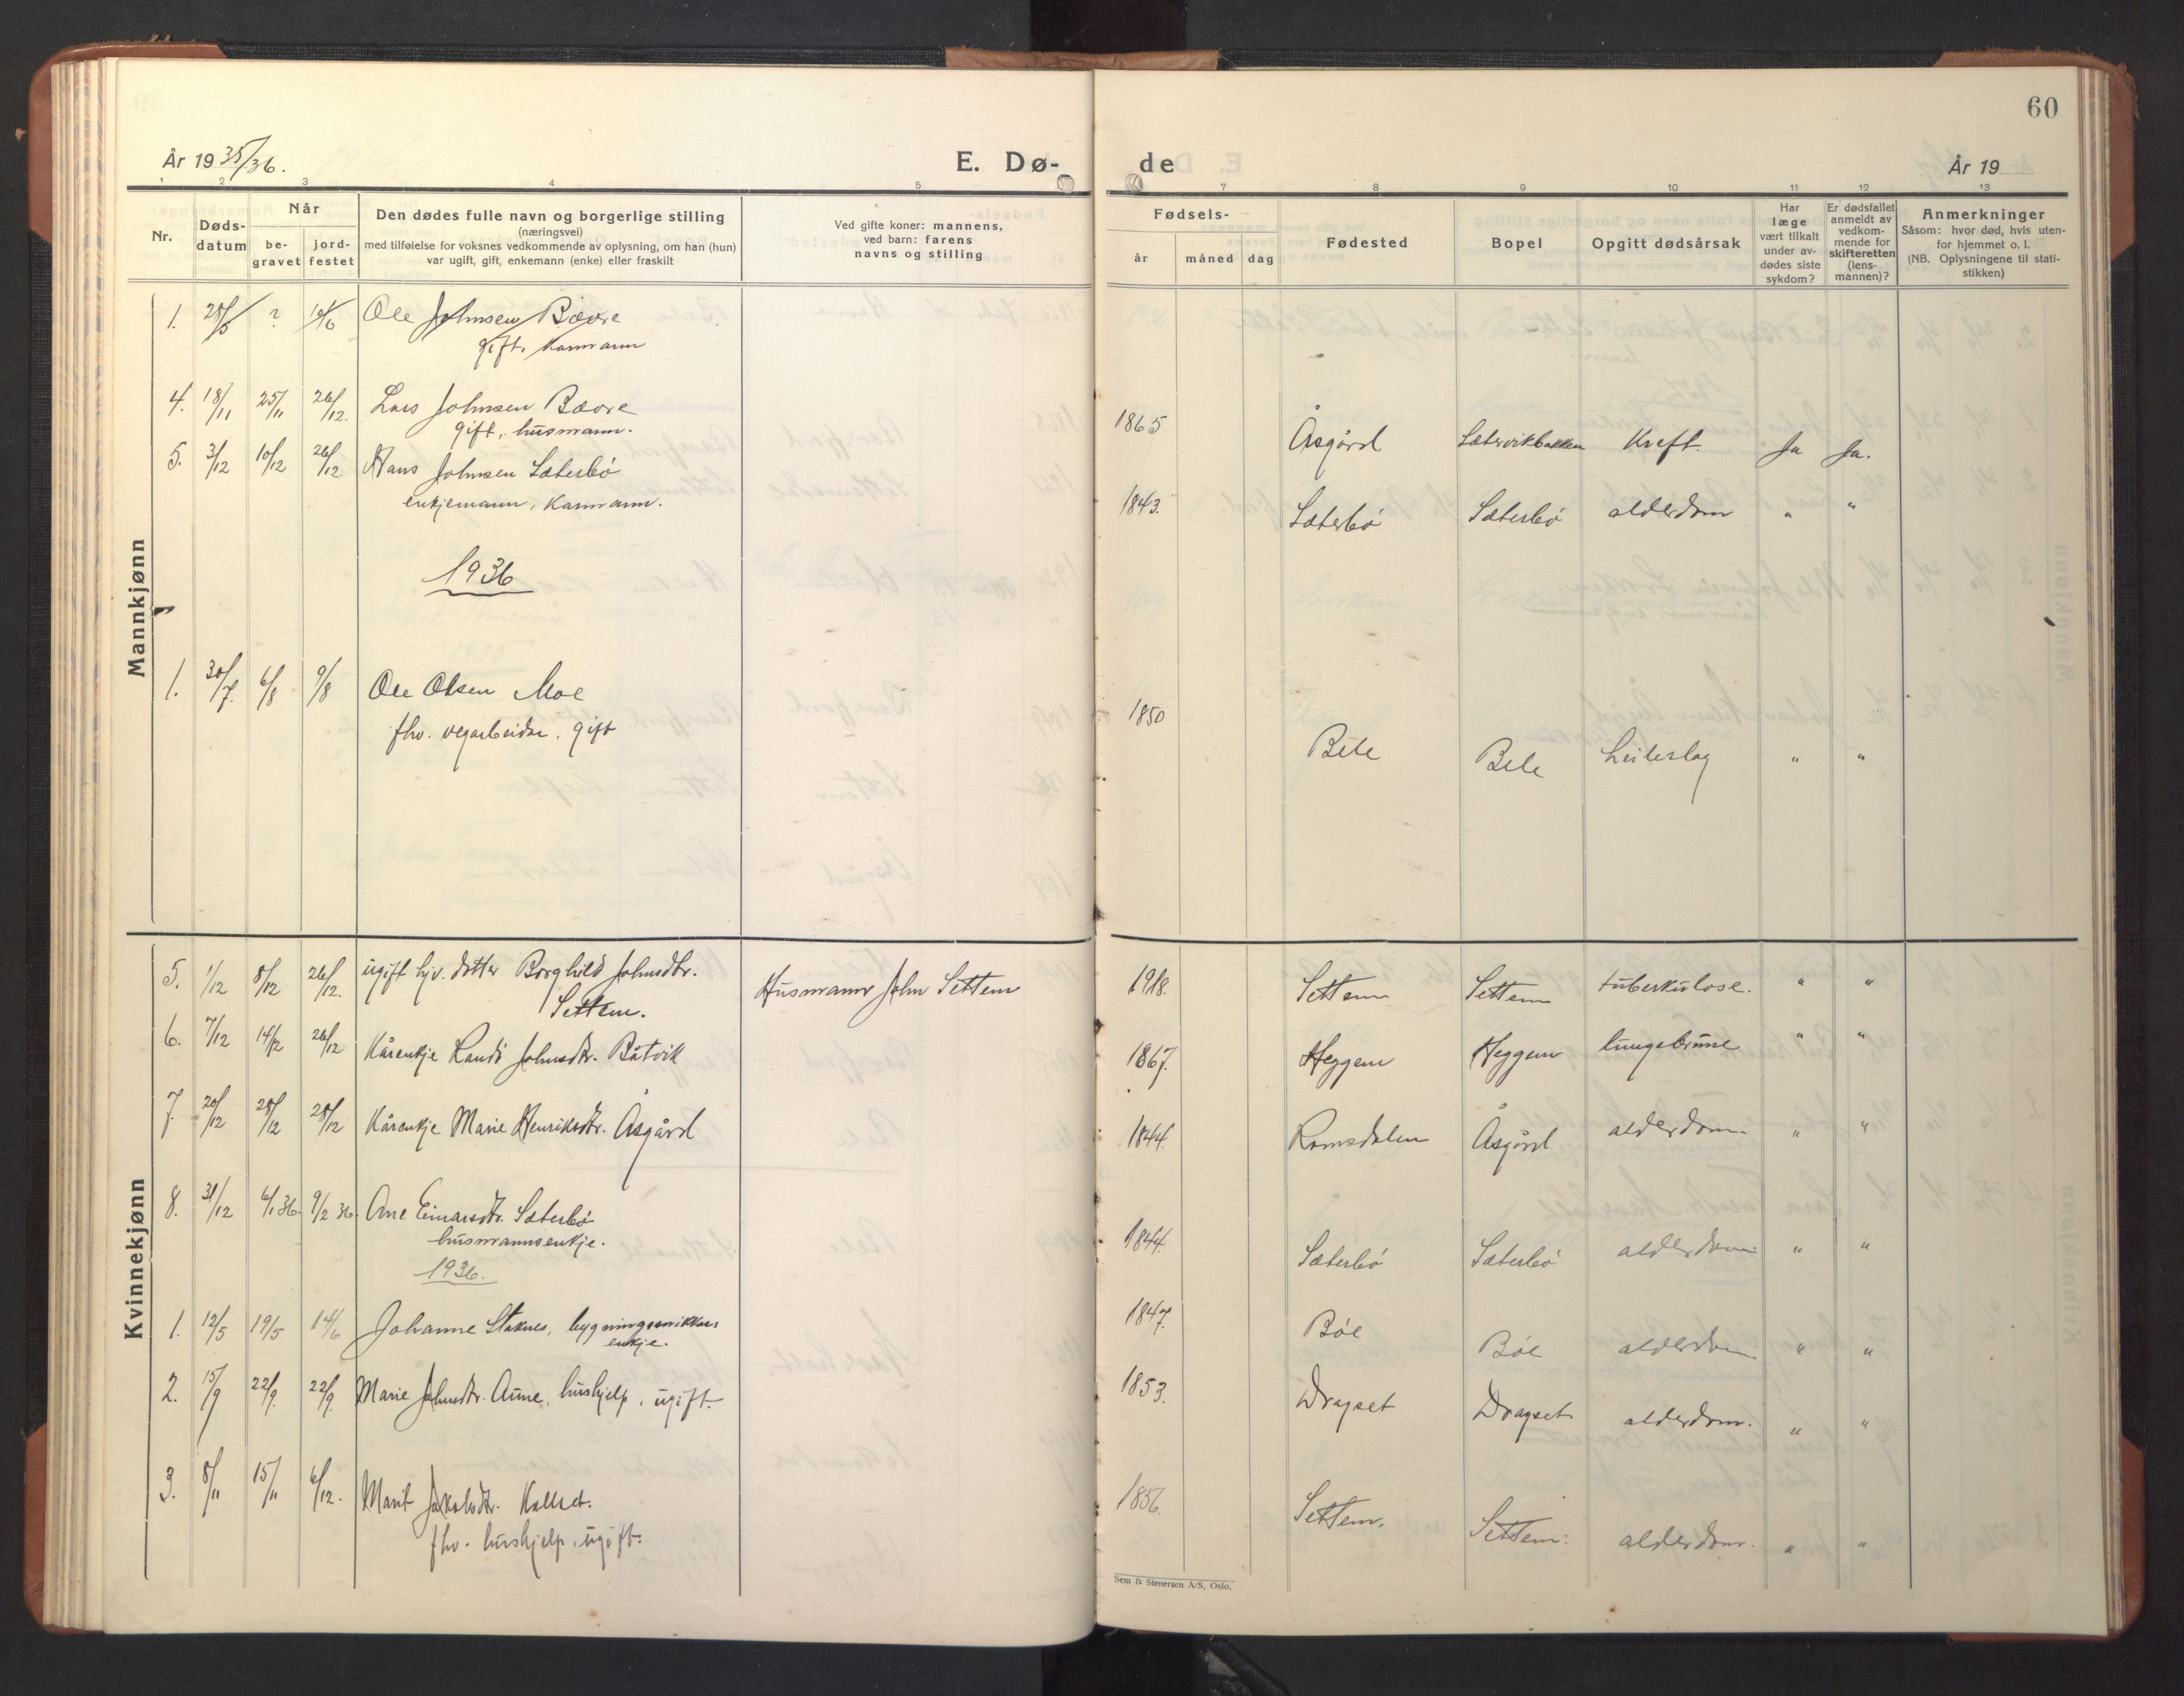 60
År 19 35/36.
E. Dø-
de
År 19
1 2 3 4 5
7 8 9 10 11 12 13
Nr.
Døds-
datum
Når
be-
gravet
jord-
festet
Den dødes fulle navn og borgerlige stilling
(næringsvei)
med tilføielse for voksnes vedkommende av oplysning, om han (hun)
var ugift, gift, enkemann (enke) eller fraskilt
Ved gifte koner: mannens,
ved barn: farens
navns og stilling
Fødsels-
år
måned
dag
Fødested
Bopel
Opgitt dødsårsak
Har
læge
vært tilkalt
under av-
dødes siste
sykdom?
Er dødsfallet
anmeldt av
vedkom-
mende for
skifteretten
(lens-
mannen)?
Anmerkninger
Såsom: hvor død, hvis uten-
for hjemmet o. l.
(NB. Oplysningene til stati-
stikken)
Mannkjønn
1. 28/5 ? 14/6 Ole Johnsen Bævre
gift, Kårmann
4. 18/11 25/11 26/12. Lars Johnsen Bævre 1865 Åsgård Sætervikbakken Kreft. Ja Ja.
gift, husmann.
5. 3/12 10/12 26/12 Hans Johnsen Sæterbø 1843. Sæterbø Sæterbø alderdom " "
enkjemann, Kårmann.
1936
1. 30/7. 6/8 9/8 Ole Olsen Moe 1850 Bele Bele Leileslag " "
fhv. vegarbeider, gift
Kvinnekjønn
5. 1/12 8/12 26/12. ugift hjv. datter Borghild Johnsdtr. Husmann John Settem 1918. Settem Settem tuberkulose. " "
Settem.
6. 7/12 14/12 26/12 Kårenkje Randi Johnsdtr. Båtvik 1867. Heggem Heggem lungebrune " "
7. 20/12 28/12 28/12 Kårenkje Marie Henriksdtr. Åsgård 1844. Romsdalen Åsgård alderdom. " "
8. 31/12 6/1 36. 9/2 36. Ane Einarsdtr. Sæterbø 1844. Sæterbø Sæterbø alderdom " "
husmannsenkje.
1936.
1. 12/5 19/5 14/6 Johanne Staknes, bygningssnikkers 1847. Bøe Bøe alderdom " "
enkje.
2. 15/9 22/9. 22/9. Marie Johnsdtr. Aune, hushjelp, ugift. 1853. Dragset Dragset alderdom. " "
3. 8/11 15/11 6/12. Marit Jakobsdtr. Kallset. 1856. Settem. Settem. alderdom. " "
fhv. hushjelp, ugift.
Sem & Stenersen A/S, Oslo.